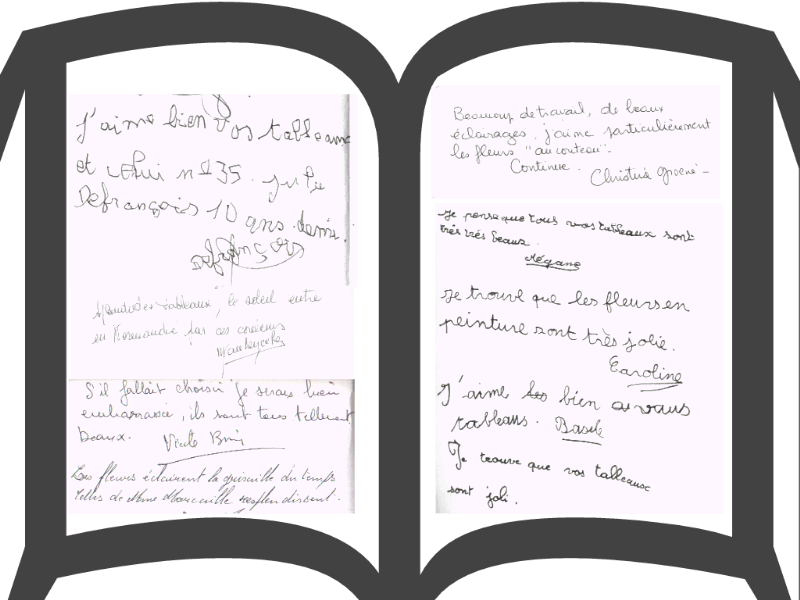 J'aime bien vos tableaux
et celui n° 35. Julie
Defrançois 10 ans demi.
Defrançois
tableaux, le soleil entre
en Normandie par ces couleurs
S'il fallait choisir je serais bien
embarrassée, ils sont tous tellement
beaux.
Les fleurs éclairent la grisaille du temps
celles de Mme resplendissent.
Beaucoup de travail, de beaux
éclairages. j'aime particulièrement
les fleurs "au couteau".
Continue.
Christine
Je pense que tous vos tableaux sont
très très beaux.
Mégane
Je trouve que les fleurs en
peinture sont très jolie.
Caroline
J'aime bien
tableaux. Basile
Je trouve que vos tableaux
sont joli.